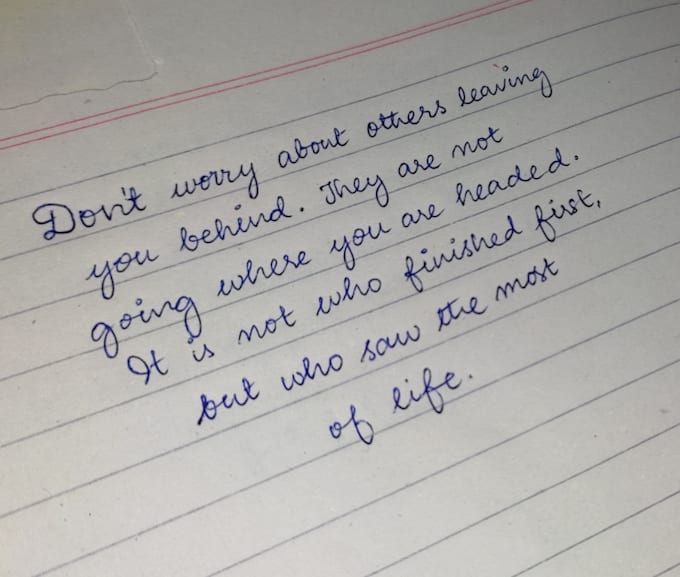 Don't worry about others leaving
you behind. They are not
going where you are headed.
It is not who finished first,
but who saw the most
of life.